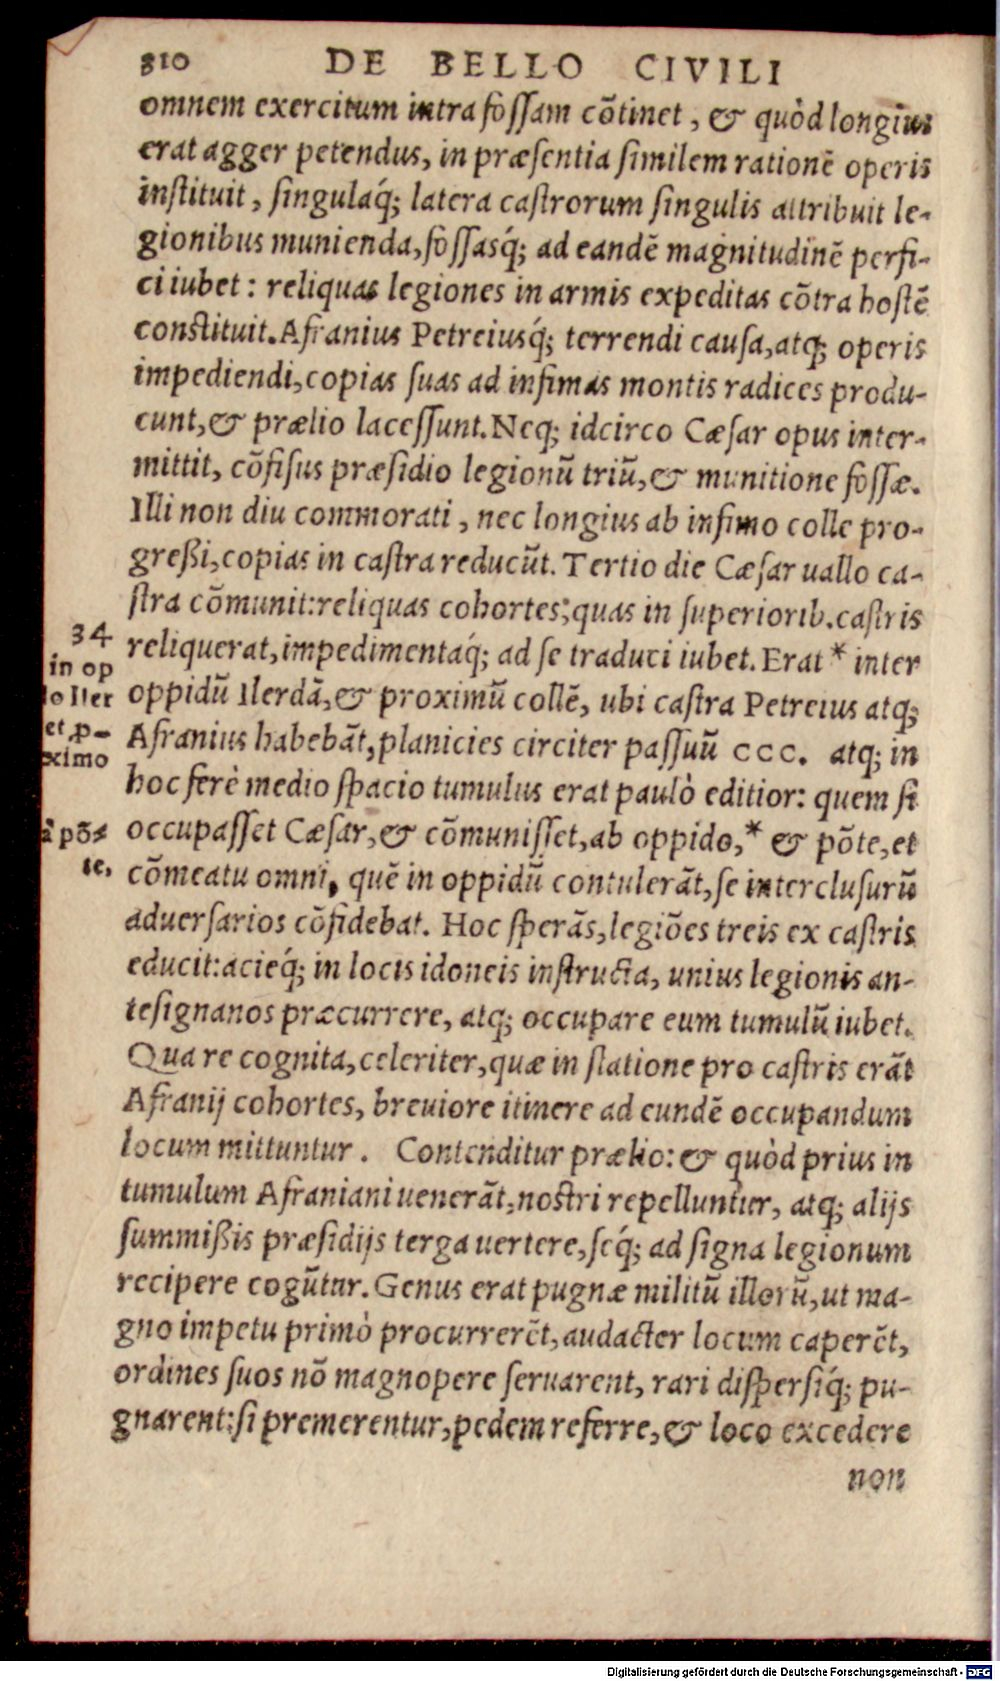 310 DE BELLO CIVILI
omnem exercitum intra foſſam cõtinet, & quòd longius
erat agger petendus, in præſentia ſimilem rationẽ operis
inſtituit, ſingulaq́; latera caſtrorum ſingulis attribuit le-
gionibus munienda, foſſasq́; ad eandẽ magnitudinẽ perfi-
ci iubet: reliquas legiones in armis expeditas cõtra hoſtẽ
conſtituit. Afranius Petreiusq́; terrendi cauſa, atq; operis
impediendi, copias ſuas ad infimas montis radices produ-
cunt, & prælio laceſſunt. Neq; idcirco Cæſar opus inter-
mittit, cõfiſus præſidio legionũ triũ, & munitione foſſæ.
Illi non diu commorati, nec longius ab infimo colle pro-
greßi, copias in caſtra reducũt. Tertio die Cæſar uallo ca-
ſtra cõmunit: reliquas cohortes, quas in ſuperiorib. caſtris
reliquerat, impedimentaq́; ad ſe traduci iubet. Erat * inter
oppidũ Ilerdã, & proximũ collẽ, ubi caſtra Petreius atq;
Afranius habebãt, planicies circiter paſſuũ CCC. atq; in
hoc ferè medio ſpacio tumulus erat paulò editior: quem ſi
occupaſſet Cæſar, & cõmuniſſet, ab oppido, * & põte, et
cõmeatu omni, quẽ in oppidũ contulerãt, ſe interclusurũ
aduerſarios cõfidebat. Hoc ſperãs, legiões treis ex caſtris
educit: acieq́; in locis idoneis inſtructa, unius legionis an-
teſignanos præcurrere, atq; occupare eum tumulũ iubet.
Qua re cognita, celeriter, quæ in ſtatione pro caſtris erãt
Afranij cohortes, breuiore itinere ad eundẽ occupandum
locum mittuntur. Contenditur prælio: & quòd prius in
tumulum Afraniani uenerãt, noſtri repelluntur, atq; alijs
ſummißis præſidijs terga uertere, ſeq́; ad ſigna legionum
recipere cogũtur. Genus erat pugnæ militũ illorũ, ut ma-
gno impetu primò procurrerẽt, audacter locum caperẽt,
ordines ſuos nõ magnopere ſeruarent, rari diſperſiq́; pu-
gnarent: ſi premerentur, pedem referre, & loco excedere
non
34
in op
lo Iler
et ꝓ-
ximo
à põ-
te.
Digitalisierung gefördert durch die Deutsche Forschungsgemeinschaft - DFG